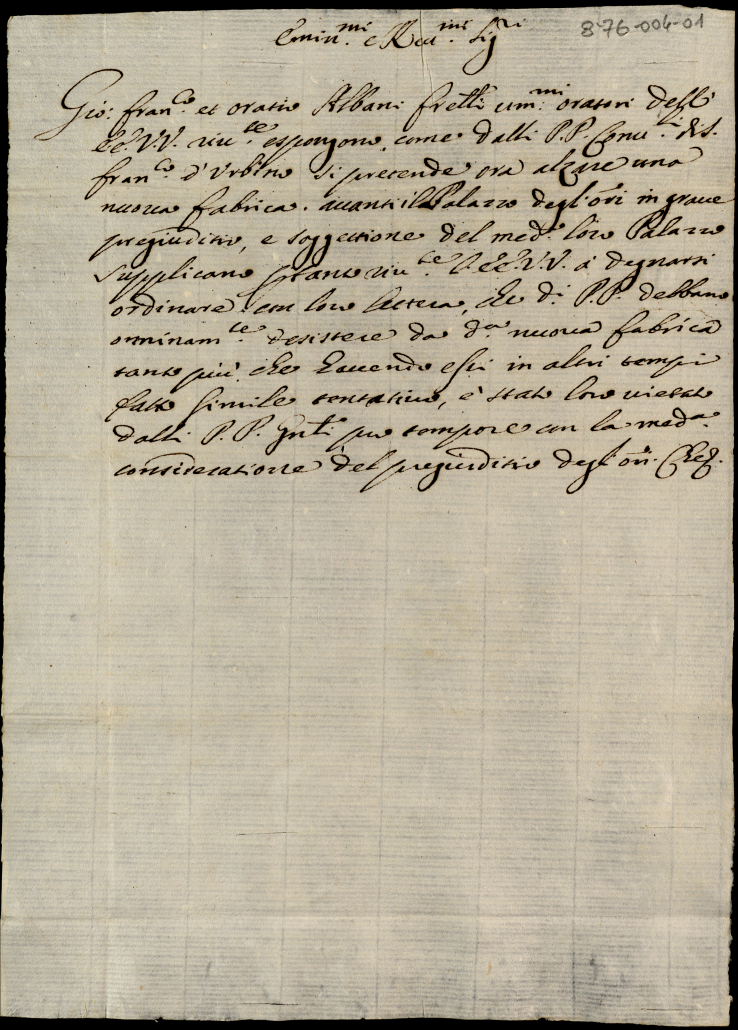 8-76-004-01
Emin.mi e Reu.mi Sig.ri
Gio: Fran.co et oratio Albani fretti um.mi oratori dell'
EE. VV. riu.te espongono, come dalli P.P. Conu.li di S.
Fran.co d'Urbino si pretende ora alzare una
nuoua fabrica. auanti il Palazzo degl'ori in graue
pregiuditio, e soggettione del med.o loro Palazzo
Supplicano pertanto riu.te l'EE. VV. à degnarsi
ordinare con loro lettera, che d.i P.P. debbano
ominam.te desistere da d.a nuoua fabrica
tanto più, che hauendo essi in altri tempi
fatto simile tentatiuo, è stato loro uietato
dalli P.P. Gnli pro tempore con la med.a
consideratione del pregiuditio degl'ori. Che